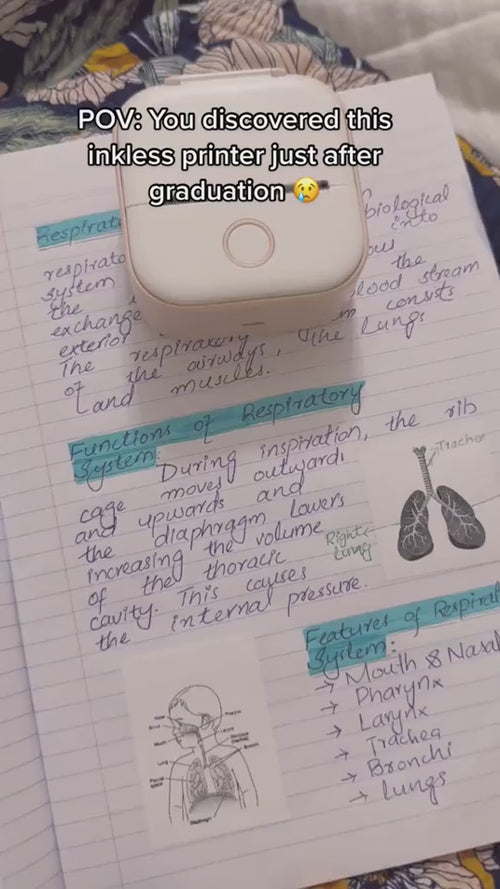 POV: You discovered this
inkless printer just after
graduation 😢
Respirat
biological
respirato into
system ous
the the
exchange blood stream
exterior m consists
The respiratory
of the airways, the lungs
and muscles.
Functions of Respiratory
System:
During inspiration, the rib
cage moves outward
and upwards and
the diaphragm lowers
increasing the volume
of the thoracic
cavity. This causes
the internal pressure.
Trachea
Right
Lung
Features of Respirat
System:
→ Mouth & Nasal
→ Pharynx
→ Larynx
→ Trachea
→ Bronchi
→ Lungs
Diaphragm